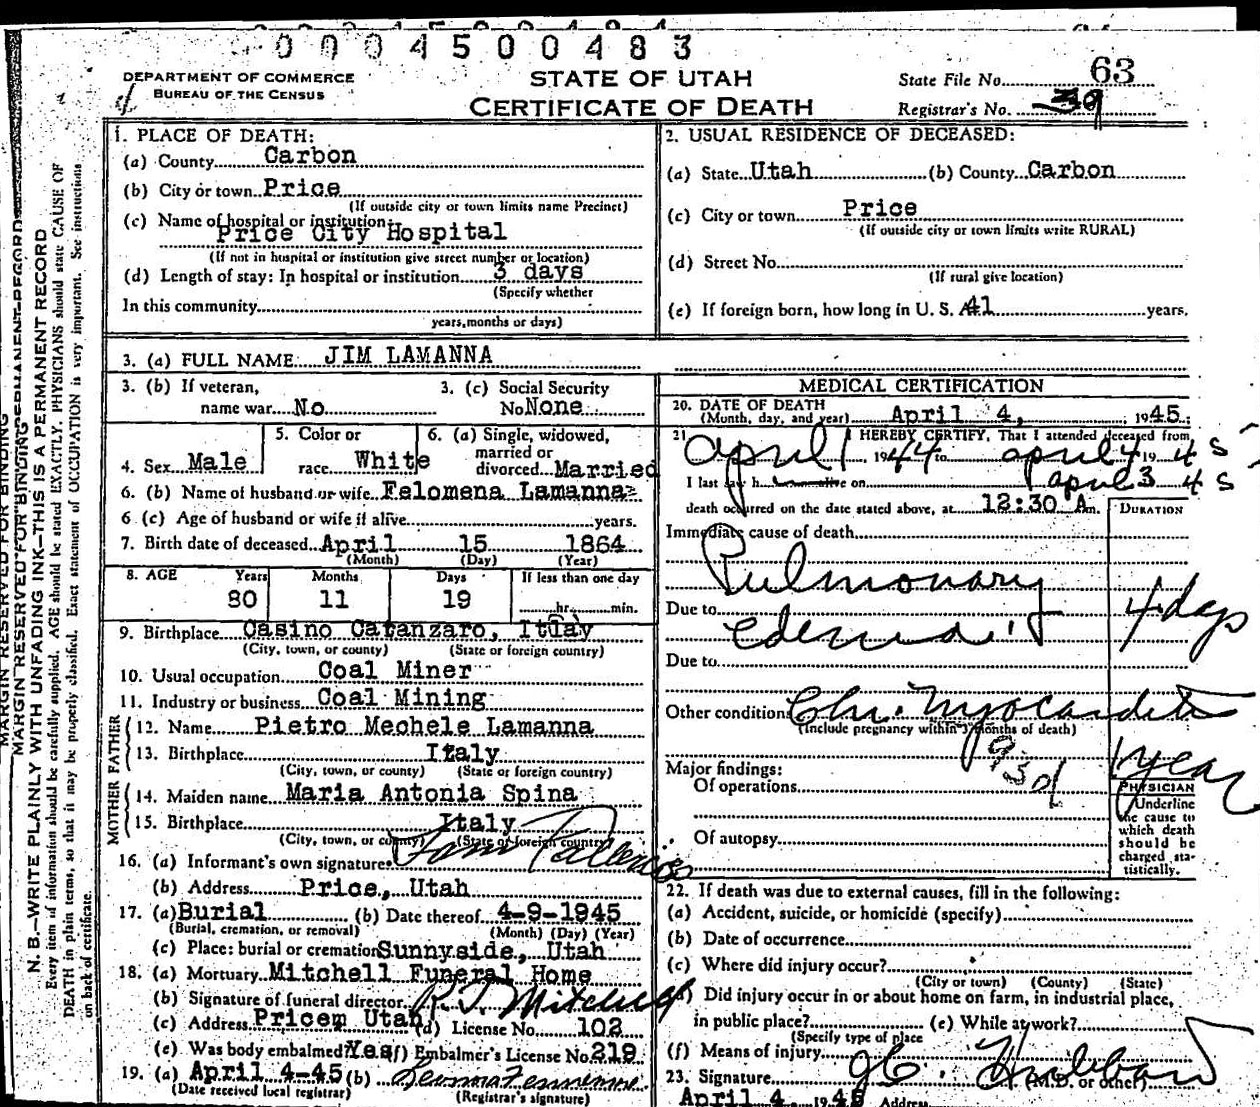 0004500483
DEPARTMENT OF COMMERCE
BUREAU OF THE CENSUS
STATE OF UTAH
CERTIFICATE OF DEATH
State File No. 63
Registrar's No. 39
MARGIN RESERVED FOR BINDING
N. B.—WRITE PLAINLY WITH UNFADING INK—THIS IS A PERMANENT RECORD
Every item of information should be carefully supplied. AGE should be stated EXACTLY. PHYSICIANS should state CAUSE OF
DEATH in plain terms, so that it may be properly classified. Exact statement of OCCUPATION is very important. See instructions
on back of certificate.
1. PLACE OF DEATH:
(a) County Carbon
(b) City or town Price
(If outside city or town limits name Precinct)
(c) Name of hospital or institution:
Price City Hospital
(If not in hospital or institution give street number or location)
(d) Length of stay: In hospital or institution 3 days
(Specify whether
In this community
years, months or days)
2. USUAL RESIDENCE OF DECEASED:
(a) State Utah (b) County Carbon
(c) City or town Price
(If outside city or town limits write RURAL)
(d) Street No.
(If rural give location)
(e) If foreign born, how long in U. S. A. 41 years.
3. (a) FULL NAME JIM LAMANNA
3. (b) If veteran, 3. (c) Social Security
name war No No. None
4. Sex Male
5. Color or
race White
6. (a) Single, widowed,
married or
divorced Married
6. (b) Name of husband or wife Felomena Lamanna
6 (c) Age of husband or wife if alive years.
7. Birth date of deceased April 15 1864
(Month) (Day) (Year)
8. AGE Years Months Days If less than one day
80 11 19 hr. min.
9. Birthplace Casino Catanzaro, Italy
(City, town, or county) (State or foreign country)
10. Usual occupation Coal Miner
11. Industry or business Coal Mining
FATHER
12. Name Pietro Mechele Lamanna
13. Birthplace Italy
(City, town, or county) (State or foreign country)
MOTHER
14. Maiden name Maria Antonia Spina
15. Birthplace Italy
(City, town, or county) (State or foreign country)
16. (a) Informant's own signature Tom
(b) Address Price, Utah
17. (a) Burial (b) Date thereof 4-9-1945
(Burial, cremation, or removal) (Month) (Day) (Year)
(c) Place: burial or cremation Sunnyside, Utah
18. (a) Mortuary Mitchell Funeral Home
(b) Signature of funeral director Mitchell
(c) Address Pricem Utah (d) License No. 102
(e) Was body embalmed? Yes (f) Embalmer's License No. 219
19. (a) April 4-45 (b)
(Date received local registrar) (Registrar's signature)
MEDICAL CERTIFICATION
20. DATE OF DEATH
(Month, day, and year) April 4, 1945
21 I HEREBY CERTIFY, That I attended deceased from
April 1, 1944 to april 4 19 45
I last saw h alive on april 3 45
death occurred on the date stated above, at 12:30 A m. DURATION
Immediate cause of death
Pulmonary
Due to edema 4 days
Due to
Other conditions Chr. Myocarditis
(Include pregnancy within 3 months of death)
93d 1 year
Major findings:
Of operations
Of autopsy
PHYSICIAN
Underline
the cause to
which death
should be
charged sta-
tistically.
22. If death was due to external causes, fill in the following:
(a) Accident, suicide, or homicide (specify)
(b) Date of occurrence
(c) Where did injury occur?
(City or town) (County) (State)
(d) Did injury occur in or about home on farm, in industrial place,
in public place? (e) While at work?
(Specify type of place
(f) Means of injury
23. Signature (M.D. or other)
April 4, 1945 Address